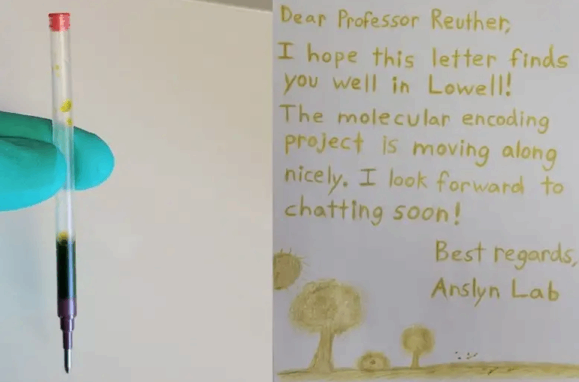 Dear Professor Reuther,
I hope this letter finds
you well in Lowell!
The molecular encoding
project is moving along
nicely. I look forward to
chatting soon!
Best regards,
Anslyn Lab